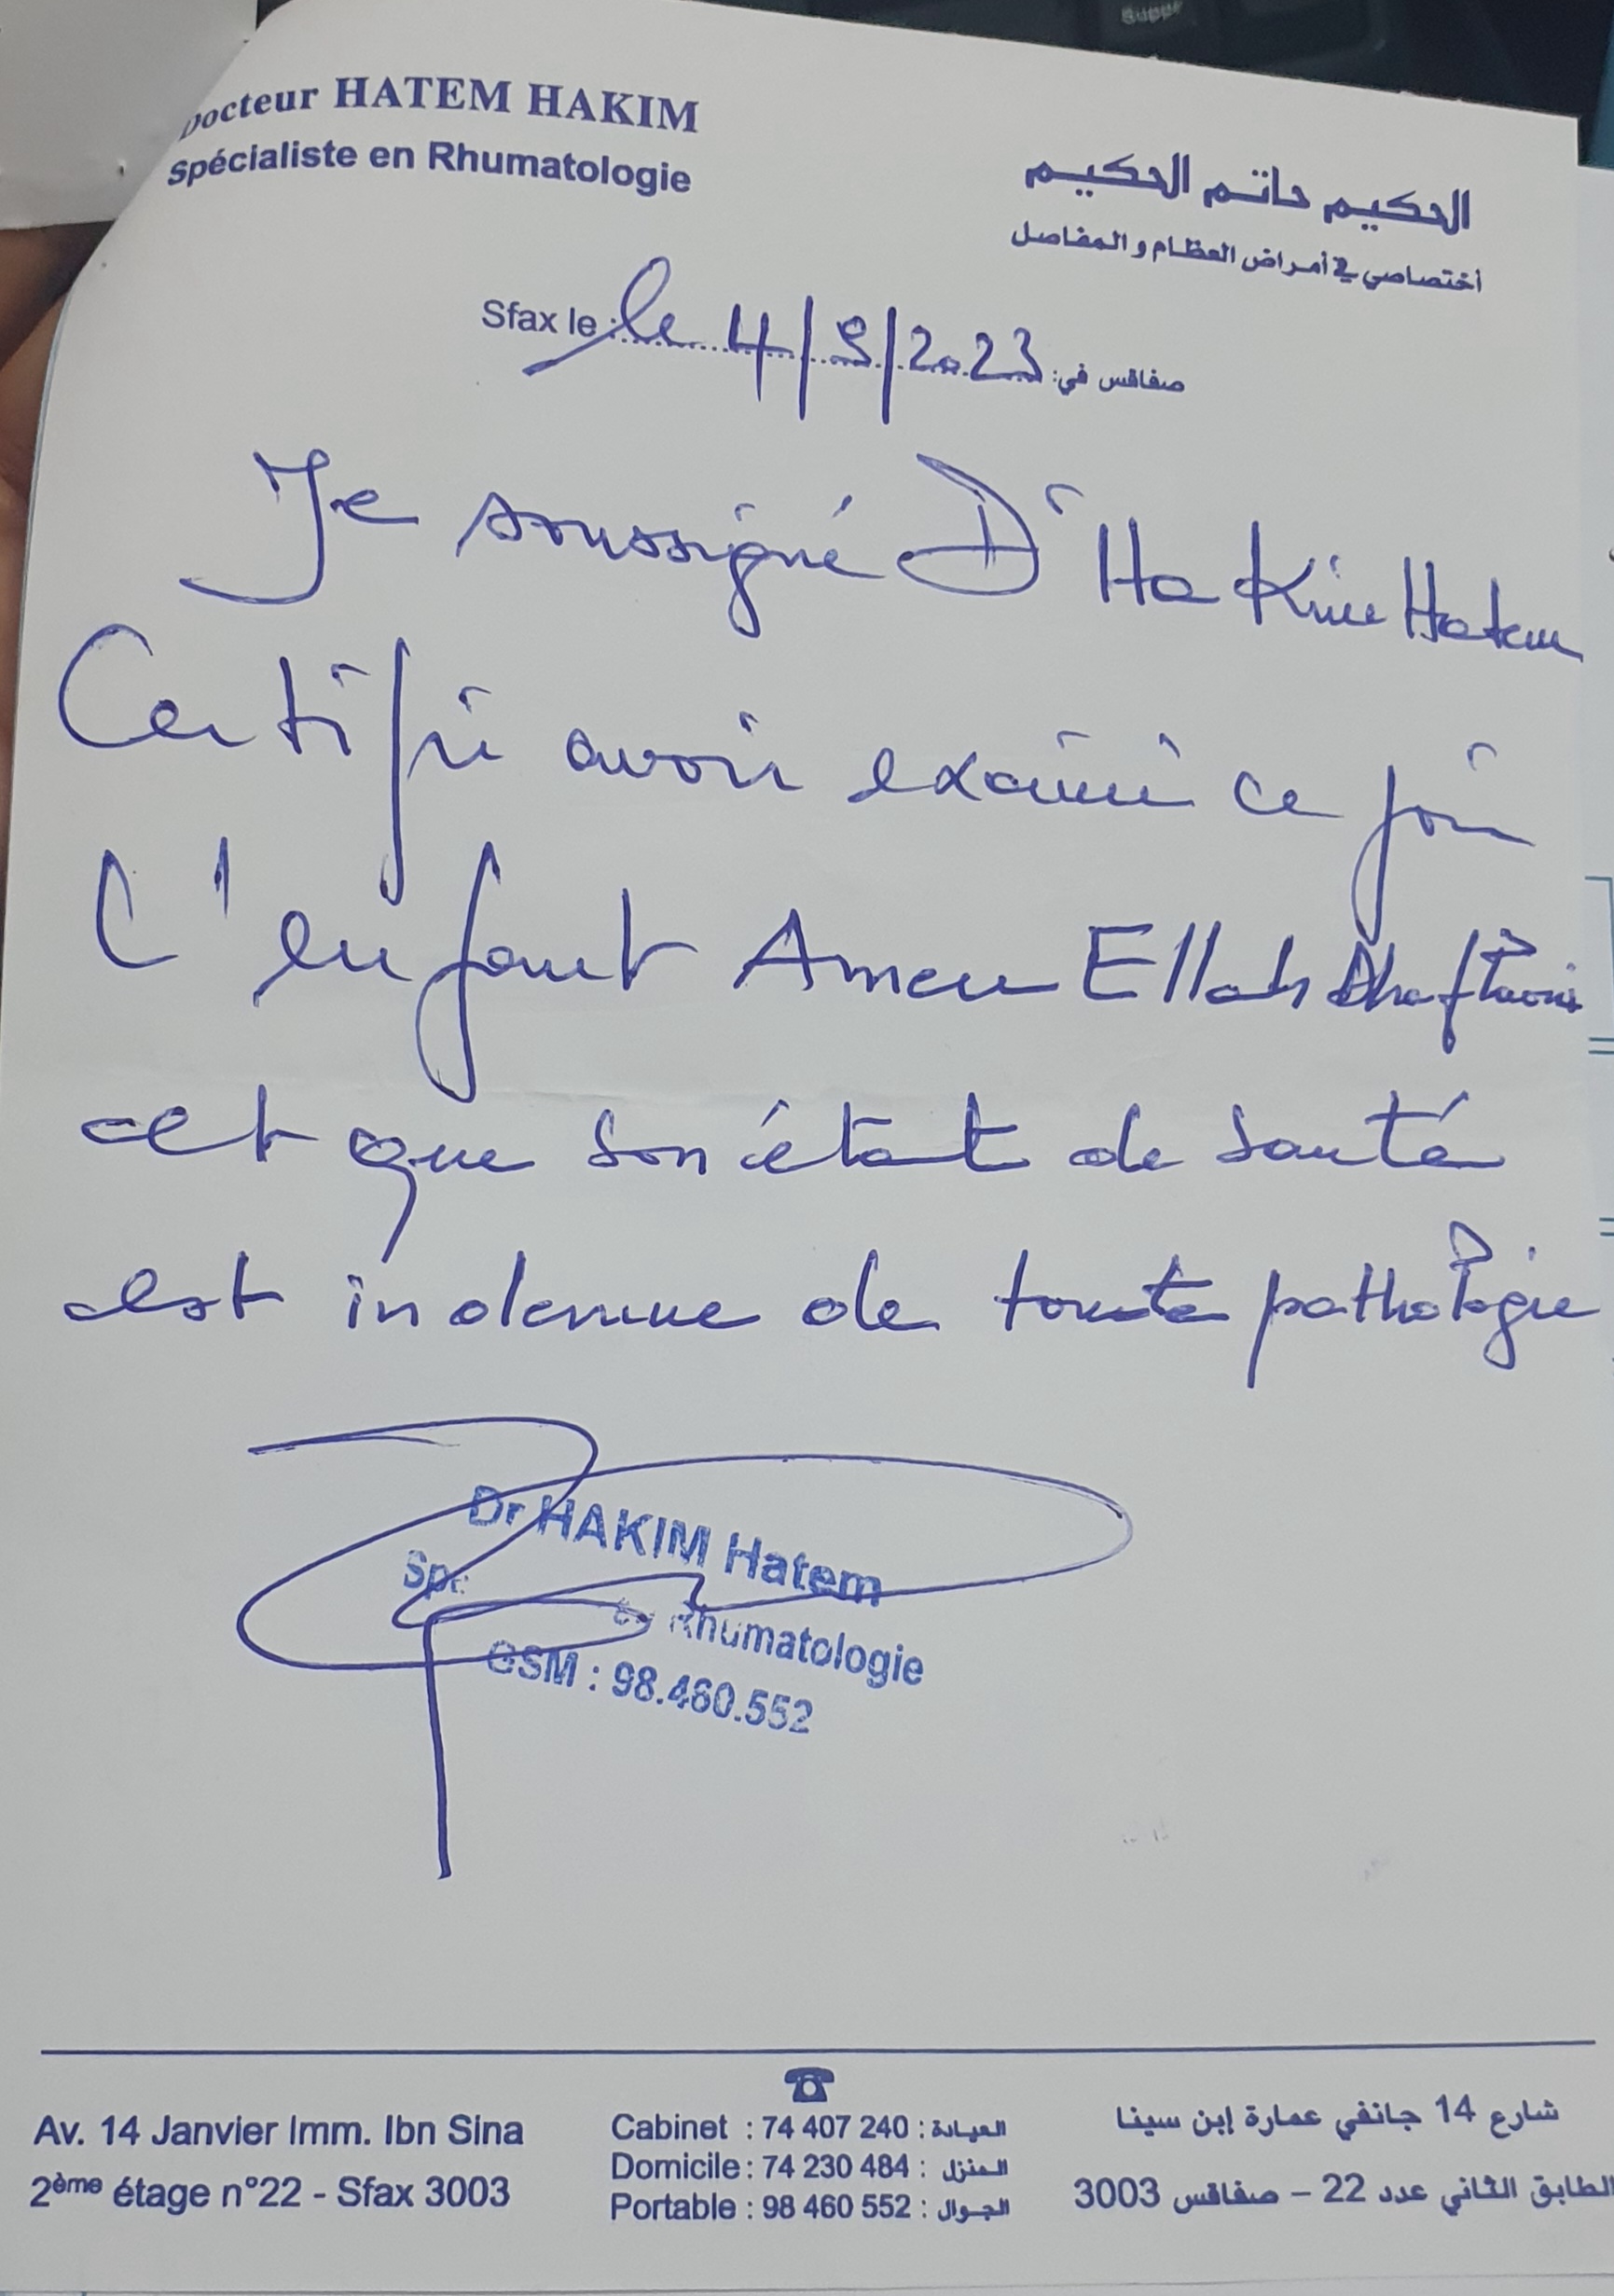 Suppr
Docteur HATEM HAKIM
Spécialiste en Rhumatologie
الحكيم حاتم الحكيم
أختصاصي في أمراض العظام والمفاصل
Sfax le : le 4/9/2023 صفاقس في:
Je soussigné Dr Hakim Hatem
Certifie avoir examiné ce jour
L'enfant Amen Ellah
et que son état de santé
est indemne de toute pathologie
Dr HAKIM Hatem
Rhumatologie
GSM : 98.460.552
Av. 14 Janvier Imm. Ibn Sina
2ème étage n°22 - Sfax 3003
Cabinet : 74 407 240 : العيادة
Domicile : 74 230 484 : المنزل
Portable : 98 460 552 : الجوال
شارع 14 جانفي عمارة إبن سينا
الطابق الثاني عدد 22 – صفاقس 3003